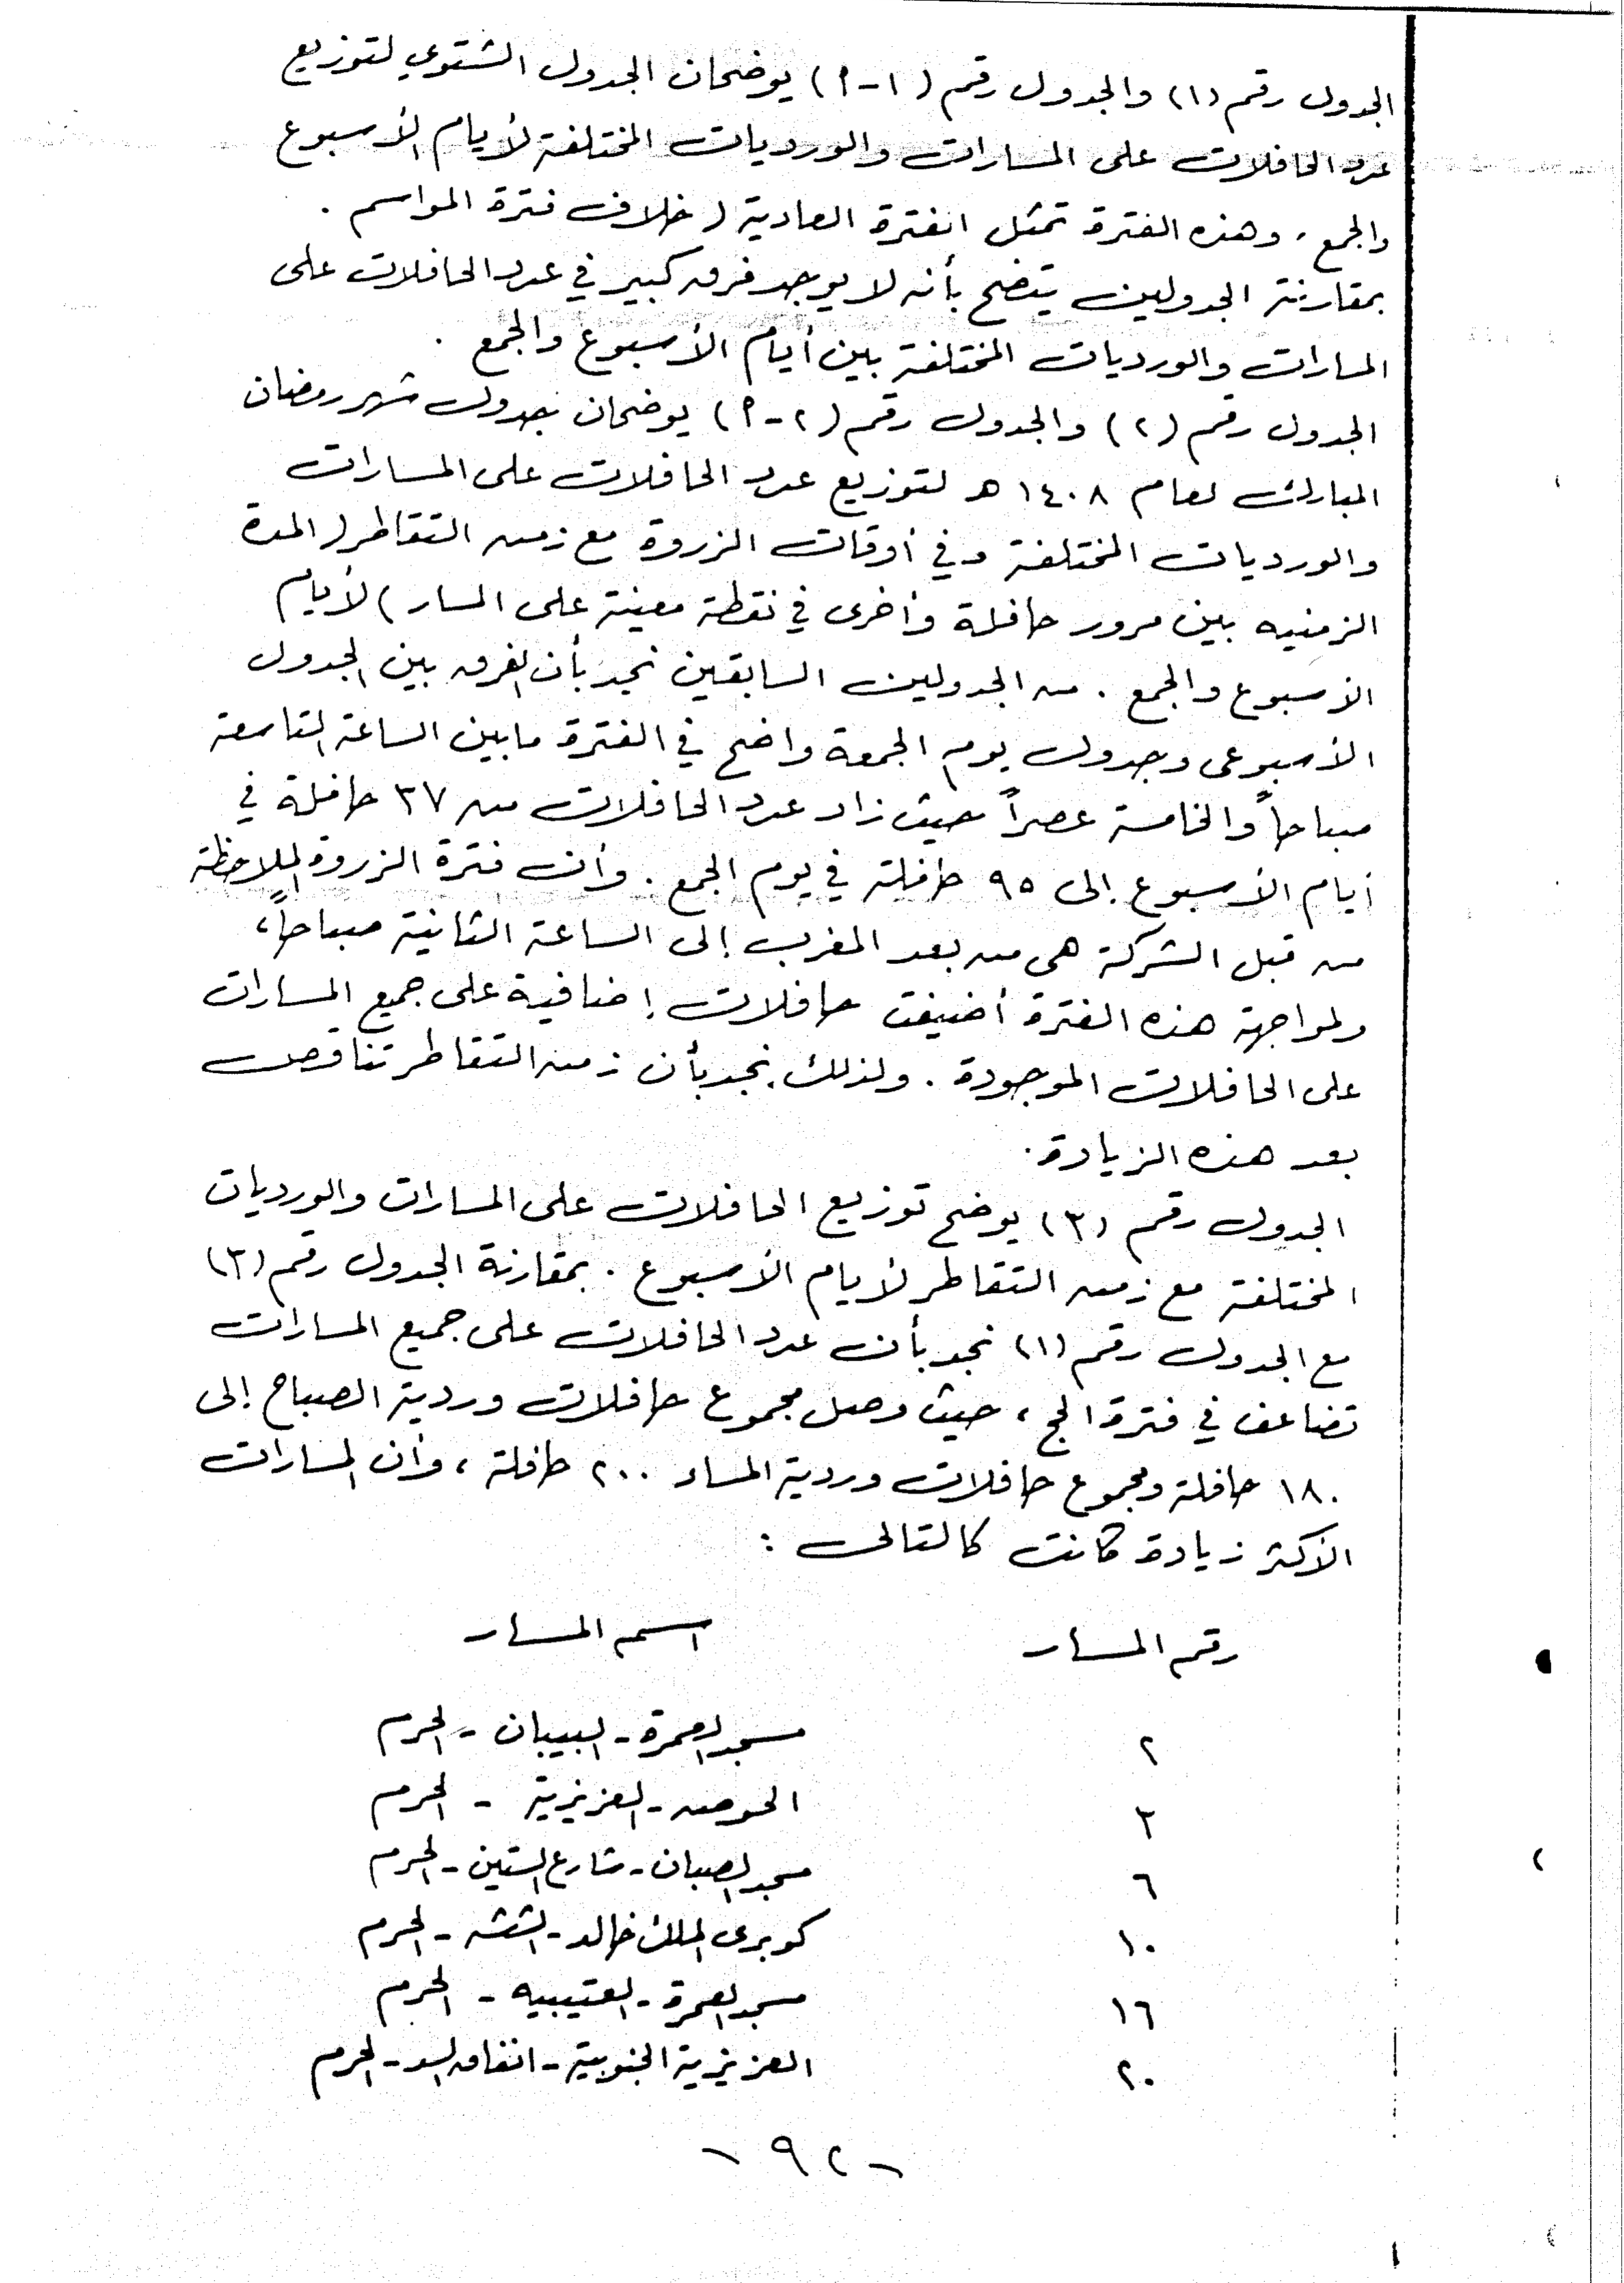 الجدول رقم (١) والجدول رقم (١-٩) يوضحان الجدول الشتوي لتوزيع
عدد الحافلات على المسارات والورديات المختلفة لأيام الأسبوع
والجمع، وهذه الفترة تمثل الفترة العادية (خلاف فترة المواسم .
بمقارنة الجدولين يتضح بأنه لا يوجد فرق كبير في عدد الحافلات على
المسارات والورديات المختلفة بين أيام الأسبوع والجمع .
الجدول رقم (٢) والجدول رقم (٢-٩) يوضحان جدول شهر رمضان
المبارك لعام ١٤٠٨ هـ لتوزيع عدد الحافلات على المسارات
والورديات المختلفة وفي أوقات الزروة مع زمن التقاطر (المدة
الزمنيه بين مرور حافلة وأخرى في نقطة معينة على المسار) لأيام
الأسبوع والجمع . من الجدولين السابقين نجد بأن الفرق بين الجدول
الأسبوعى وجدول يوم الجمعة واضح في الفترة مابين الساعة التاسعة
صباحاً والخامسة عصراً حيث زاد عدد الحافلات من ٣٧ حافلة في
أيام الأسبوع إلى ٩٥ حافلة في يوم الجمع . وأن فترة الزروة الملاحظة
من قبل الشركة هى من بعد المغرب إلى الساعة الثانية صباحاً،
ولمواجهة هذه الفترة أضيفت حافلات إضافية على جميع المسارات
على الحافلات الموجودة . ولذلك نجد بأن زمن التقاطر تناقص
بعد هذه الزيادة .
الجدول رقم (٣) يوضح توزيع الحافلات على المسارات والورديات
المختلفة مع زمن التقاطر لأيام الأسبوع . بمقارنة الجدول رقم (٣)
مع الجدول رقم (١) نجد بأن عدد الحافلات على جميع المسارات
تضاعف في فترة الحج، حيث وصل مجموع حافلات وردية الصباح إلى
١٨٠ حافلة ومجموع حافلات وردية المساء ٢٠٠ حافلة، وأن المسارات
الأكثر زيادة كانت كالتالى :
رقم المسار اسم المسار
٢ مسجد العمرة - البيبان - الحرم
٣ الحوض - العزيزية - الحرم
٦ مسجد الصبان - شارع الستين - الحرم
١٠ كوبرى الملك خالد - الششه - الحرم
١٦ مسجد العمرة - العتيبيه - الحرم
٢٠ العزيزية الجنوبية - انفاق السد - الحرم
- ٩٢ -